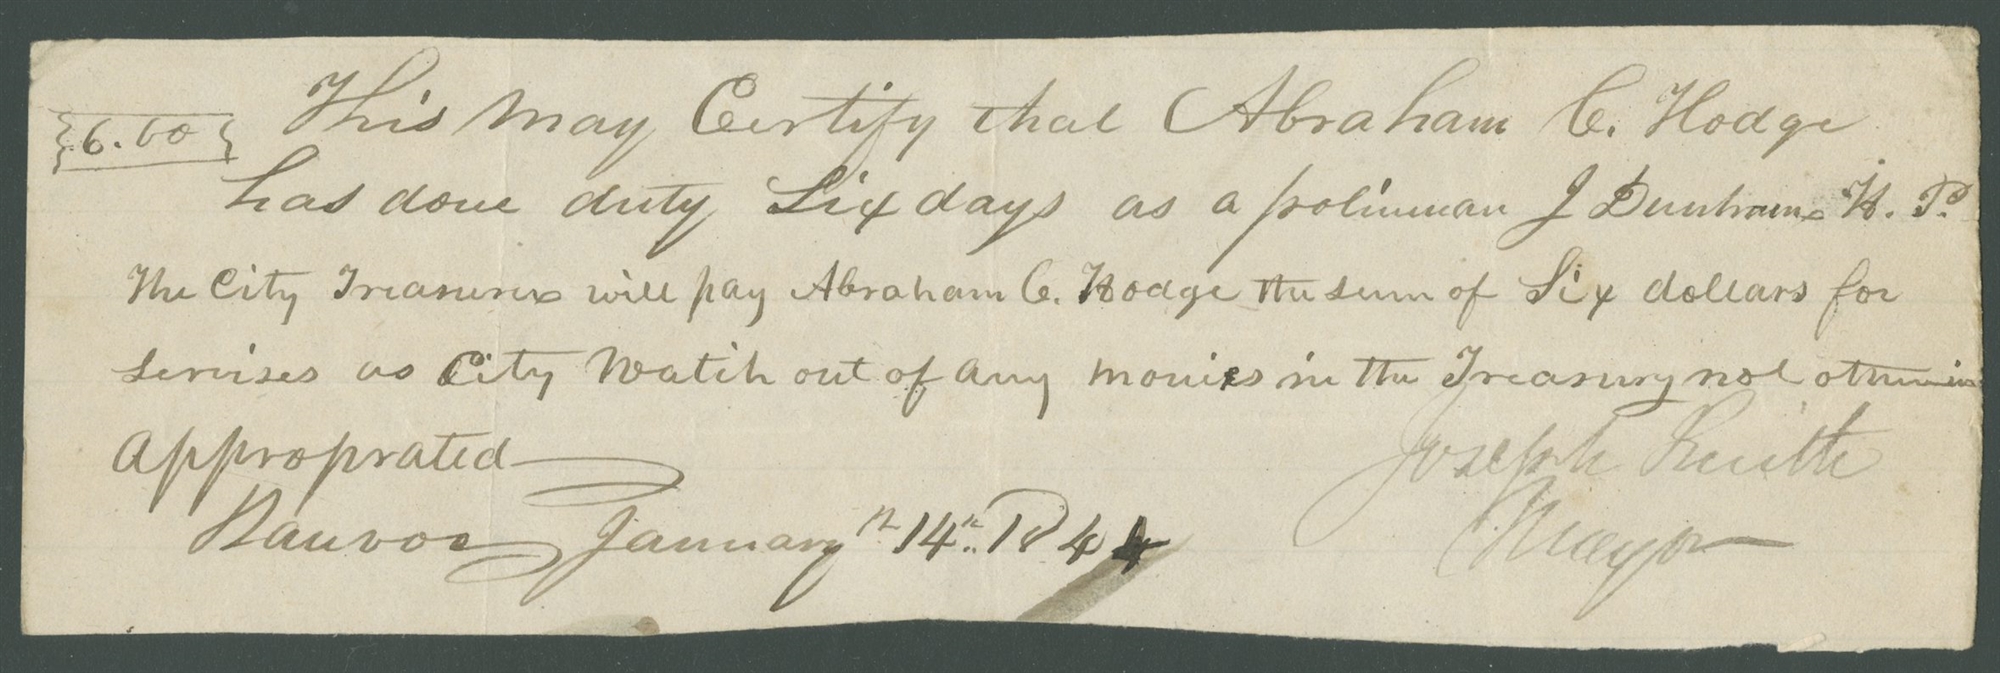 {6.00} This may Certify that Abraham C. Hodge
has done duty Six days as a poliuman J Dunham H. P.
The City Treasurer will pay Abraham C. Hodge the sum of Six dollars for
servises as City Watch out of any monies in the Treasury not otherwise
approprated
Joseph Smith
Nauvoo January 14th 1844
Mayor